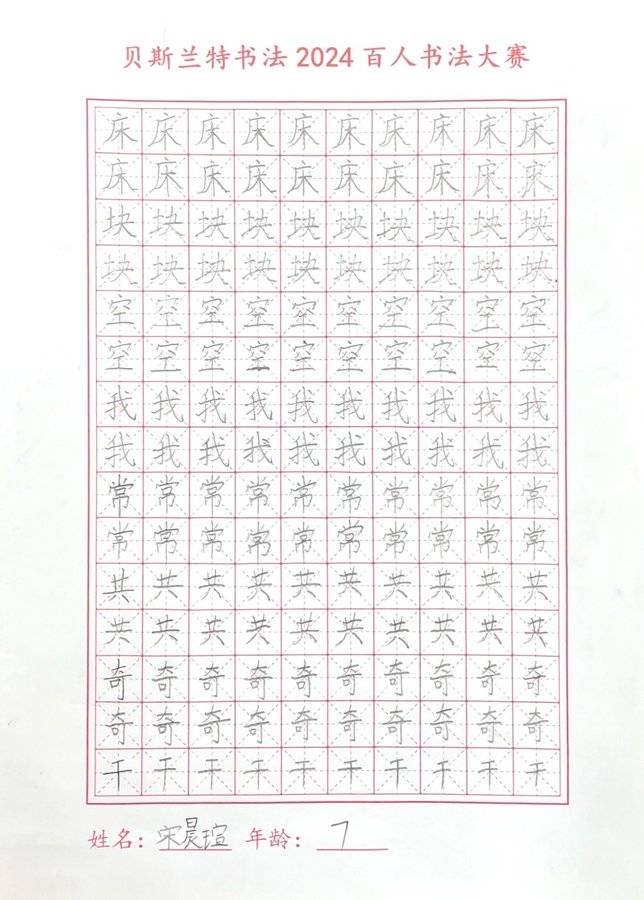 贝斯兰特书法2024百人书法大赛
床床床床床床床床床床
床床床床床床床床床床
块块块块块块块块块块
块块块块块块块块块块
空空空空空空空空空空
空空空空空空空空空空
我我我我我我我我我我
我我我我我我我我我我
常常常常常常常常常常
常常常常常常常常常常
共共共共共共共共共共
共共共共共共共共共共
奇奇奇奇奇奇奇奇奇奇
奇奇奇奇奇奇奇奇奇奇
干干干干干干干干干干
姓名：宋晨瑄 年龄：7